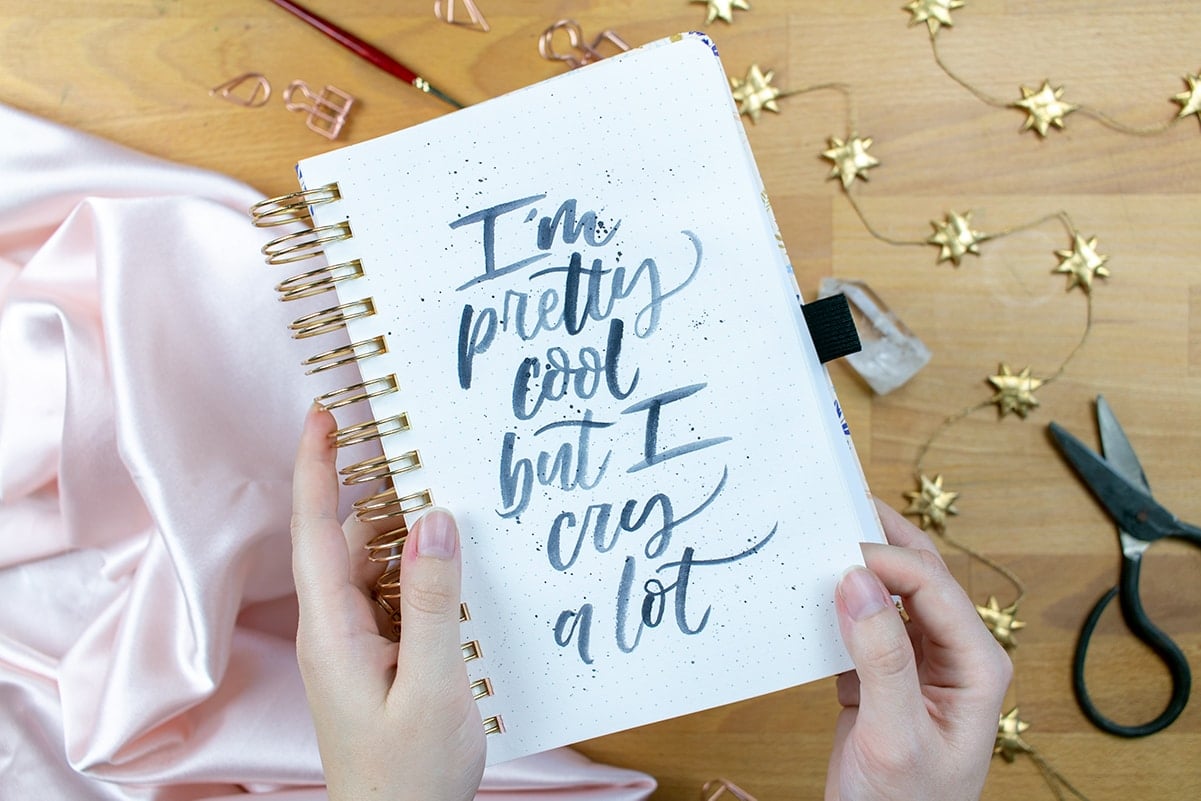 I'm
pretty
cool
but I
cry
a lot